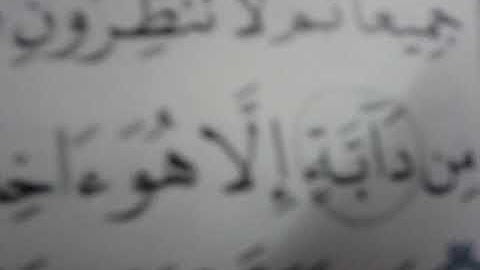 جَمِيعًا ثُمَّ لَا تُنظِرُونِ
مِن دَآبَّةٍ إِلَّا هُوَ ءَاخِ